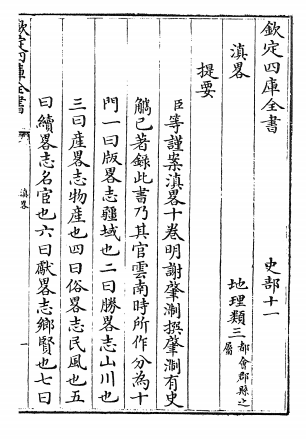 欽定四庫全書　史部十一
滇畧　地理類三都會郡縣之屬
提要
臣等謹案滇畧十卷明謝肇淛撰肇淛有史
觿已著錄此書乃其官雲南時所作分為十
門一曰版畧志疆域也二曰勝畧志山川也
三曰產畧志物產也四曰俗畧志民風也五
曰績畧志名宦也六曰獻畧志鄉賢也七曰
欽定四庫全書
滇畧
一